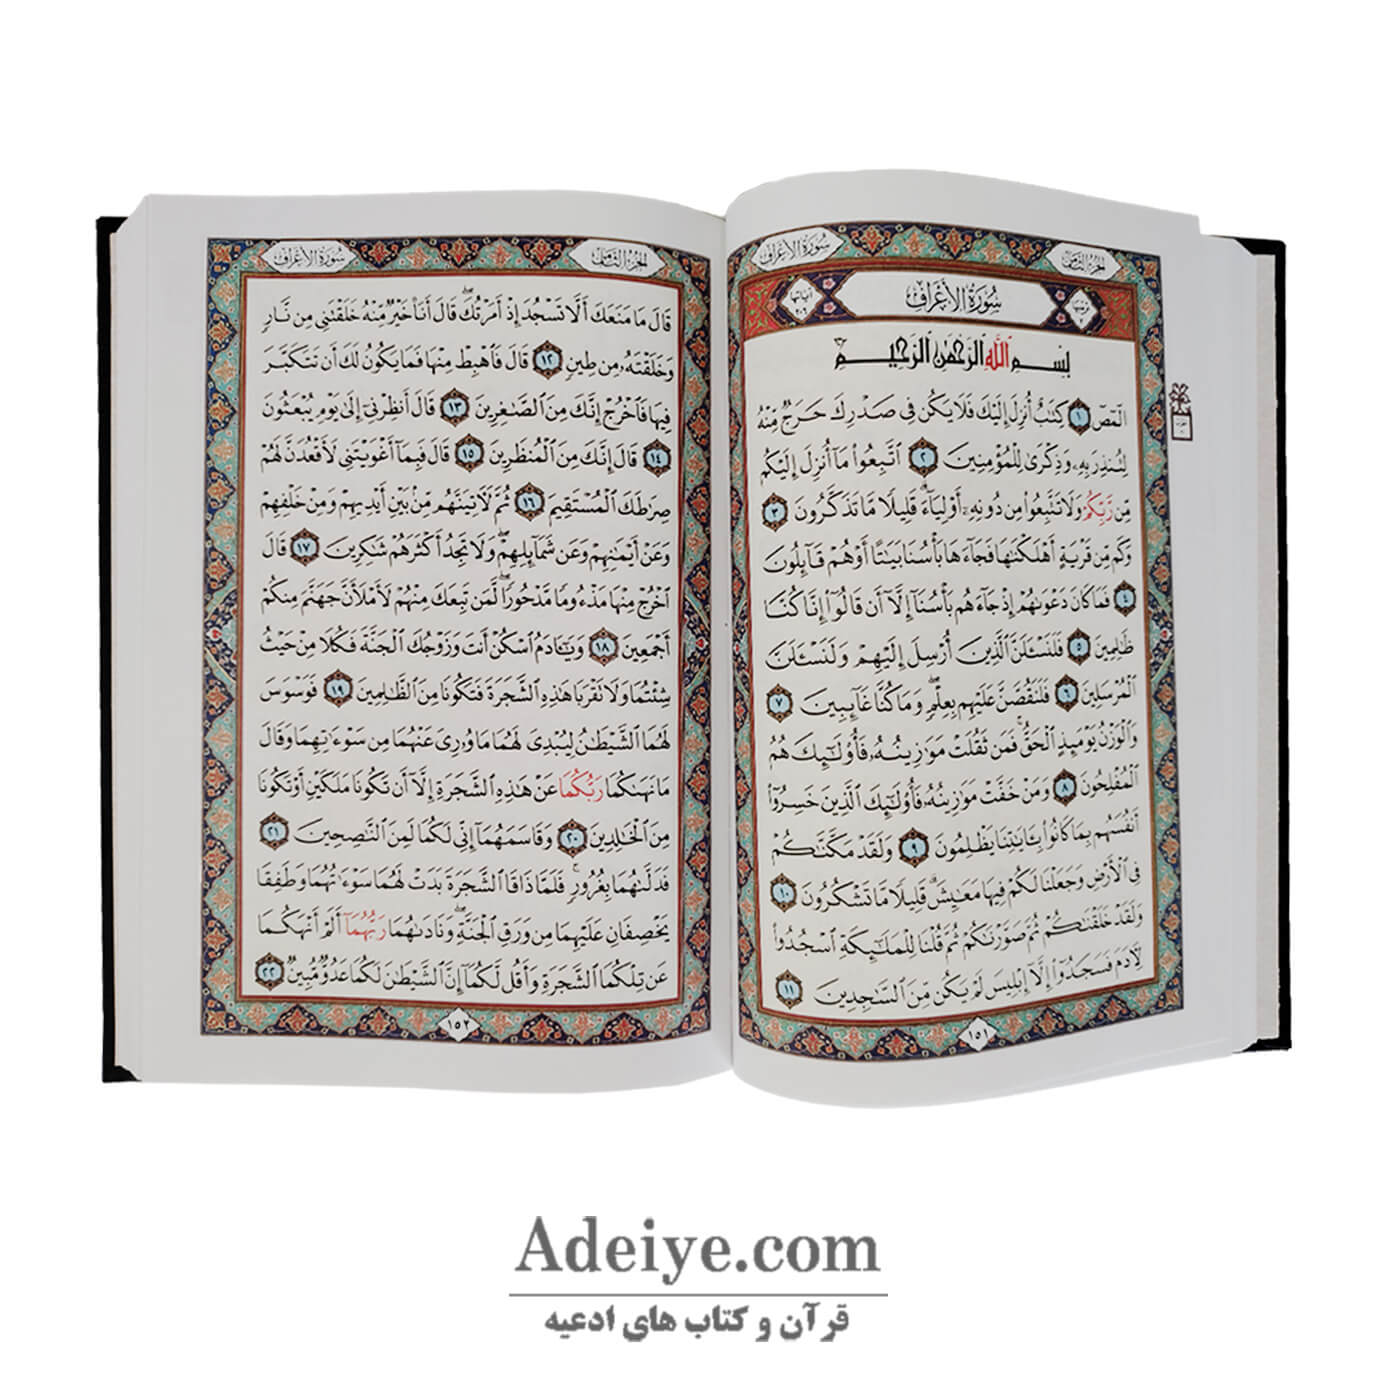 سُورَةُ الْأَعْرَافِ
الجزء الثامن
سُورَةُ الْأَعْرَافِ
آياتها ٢٠٦
بِسْمِ اللَّهِ الرَّحْمَٰنِ الرَّحِيمِ
الٓمٓصٓ ١ كِتَٰبٌ أُنزِلَ إِلَيْكَ فَلَا يَكُن فِي صَدْرِكَ حَرَجٌ مِّنْهُ
لِتُنذِرَ بِهِۦ وَذِكْرَىٰ لِلْمُؤْمِنِينَ ٢ ٱتَّبِعُوا۟ مَآ أُنزِلَ إِلَيْكُم
مِّن رَّبِّكُمْ وَلَا تَتَّبِعُوا۟ مِن دُونِهِۦٓ أَوْلِيَآءَ ۗ قَلِيلًا مَّا تَذَكَّرُونَ ٣
وَكَم مِّن قَرْيَةٍ أَهْلَكْنَٰهَا فَجَآءَهَا بَأْسُنَا بَيَٰتًا أَوْ هُمْ قَآئِلُونَ
٤ فَمَا كَانَ دَعْوَىٰهُمْ إِذْ جَآءَهُم بَأْسُنَآ إِلَّآ أَن قَالُوٓا۟ إِنَّا كُنَّا
ظَٰلِمِينَ ٥ فَلَنَسْـَٔلَنَّ ٱلَّذِينَ أُرْسِلَ إِلَيْهِمْ وَلَنَسْـَٔلَنَّ
ٱلْمُرْسَلِينَ ٦ فَلَنَقُصَّنَّ عَلَيْهِم بِعِلْمٍ ۖ وَمَا كُنَّا غَآئِبِينَ ٧
وَٱلْوَزْنُ يَوْمَئِذٍ ٱلْحَقُّ ۚ فَمَن ثَقُلَتْ مَوَٰزِينُهُۥ فَأُو۟لَٰٓئِكَ هُمُ
ٱلْمُفْلِحُونَ ٨ وَمَنْ خَفَّتْ مَوَٰزِينُهُۥ فَأُو۟لَٰٓئِكَ ٱلَّذِينَ خَسِرُوٓا۟
أَنفُسَهُم بِمَا كَانُوا۟ بِـَٔايَٰتِنَا يَظْلِمُونَ ٩ وَلَقَدْ مَكَّنَّٰكُمْ
فِي ٱلْأَرْضِ وَجَعَلْنَا لَكُمْ فِيهَا مَعَٰيِشَ ۗ قَلِيلًا مَّا تَشْكُرُونَ ١٠
وَلَقَدْ خَلَقْنَٰكُمْ ثُمَّ صَوَّرْنَٰكُمْ ثُمَّ قُلْنَا لِلْمَلَٰٓئِكَةِ ٱسْجُدُوا۟
لِـَٔادَمَ فَسَجَدُوٓا۟ إِلَّآ إِبْلِيسَ لَمْ يَكُن مِّنَ ٱلسَّٰجِدِينَ ١١
١٥١
الجزء الثامن
سُورَةُ الْأَعْرَافِ
قَالَ مَا مَنَعَكَ أَلَّا تَسْجُدَ إِذْ أَمَرْتُكَ ۖ قَالَ أَنَا۠ خَيْرٌ مِّنْهُ خَلَقْتَنِي مِن نَّارٍ
وَخَلَقْتَهُۥ مِن طِينٍ ١٢ قَالَ فَٱهْبِطْ مِنْهَا فَمَا يَكُونُ لَكَ أَن تَتَكَبَّرَ
فِيهَا فَٱخْرُجْ إِنَّكَ مِنَ ٱلصَّٰغِرِينَ ١٣ قَالَ أَنظِرْنِيٓ إِلَىٰ يَوْمِ يُبْعَثُونَ
١٤ قَالَ إِنَّكَ مِنَ ٱلْمُنظَرِينَ ١٥ قَالَ فَبِمَآ أَغْوَيْتَنِي لَأَقْعُدَنَّ لَهُمْ
صِرَٰطَكَ ٱلْمُسْتَقِيمَ ١٦ ثُمَّ لَـَٔاتِيَنَّهُم مِّنۢ بَيْنِ أَيْدِيهِمْ وَمِنْ خَلْفِهِمْ
وَعَنْ أَيْمَٰنِهِمْ وَعَن شَمَآئِلِهِمْ ۖ وَلَا تَجِدُ أَكْثَرَهُمْ شَٰكِرِينَ ١٧ قَالَ
ٱخْرُجْ مِنْهَا مَذْءُومًا مَّدْحُورًا ۖ لَّمَن تَبِعَكَ مِنْهُمْ لَأَمْلَأَنَّ جَهَنَّمَ مِنكُمْ
أَجْمَعِينَ ١٨ وَيَٰٓـَٔادَمُ ٱسْكُنْ أَنتَ وَزَوْجُكَ ٱلْجَنَّةَ فَكُلَا مِنْ حَيْثُ
شِئْتُمَا وَلَا تَقْرَبَا هَٰذِهِ ٱلشَّجَرَةَ فَتَكُونَا مِنَ ٱلظَّٰلِمِينَ ١٩ فَوَسْوَسَ
لَهُمَا ٱلشَّيْطَٰنُ لِيُبْدِيَ لَهُمَا مَا وُۥرِيَ عَنْهُمَا مِن سَوْءَٰتِهِمَا وَقَالَ
مَا نَهَىٰكُمَا رَبُّكُمَا عَنْ هَٰذِهِ ٱلشَّجَرَةِ إِلَّآ أَن تَكُونَا مَلَكَيْنِ أَوْ تَكُونَا
مِنَ ٱلْخَٰلِدِينَ ٢٠ وَقَاسَمَهُمَآ إِنِّي لَكُمَا لَمِنَ ٱلنَّٰصِحِينَ ٢١
فَدَلَّىٰهُمَا بِغُرُورٍ ۚ فَلَمَّا ذَاقَا ٱلشَّجَرَةَ بَدَتْ لَهُمَا سَوْءَٰتُهُمَا وَطَفِقَا
يَخْصِفَانِ عَلَيْهِمَا مِن وَرَقِ ٱلْجَنَّةِ ۖ وَنَادَىٰهُمَا رَبُّهُمَآ أَلَمْ أَنْهَكُمَا
عَن تِلْكُمَا ٱلشَّجَرَةِ وَأَقُل لَّكُمَآ إِنَّ ٱلشَّيْطَٰنَ لَكُمَا عَدُوٌّ مُّبِينٌ ٢٢
١٥٢
Adeiye.com
قرآن و کتاب های ادعیه